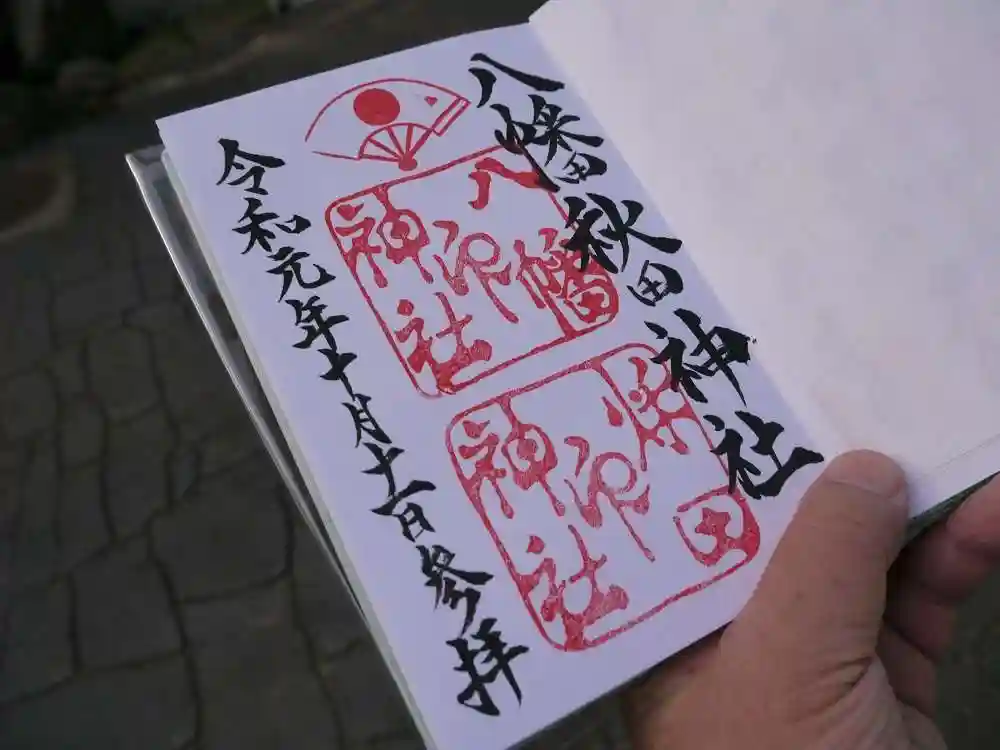 八幡秋田神社
八幡神社印
秋田神社印
令和元年十月十一日参拝